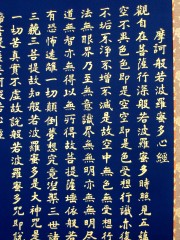 摩訶般若波羅蜜多心經
觀自在菩薩行深般若波羅蜜多時照見五
空不異色色即是空空即是色受想行識亦復
不垢不淨不增不減是故空中無色無受想行
法無眼界乃至無意識界無無明亦無無明盡
道無智亦無得以無所得故菩提薩埵依般若
有恐怖遠離一切顛倒夢想究竟涅槃三世諸
三藐三菩提故知般若波羅蜜多是大神咒是
一切苦真實不虛故說般若波羅蜜多咒即說